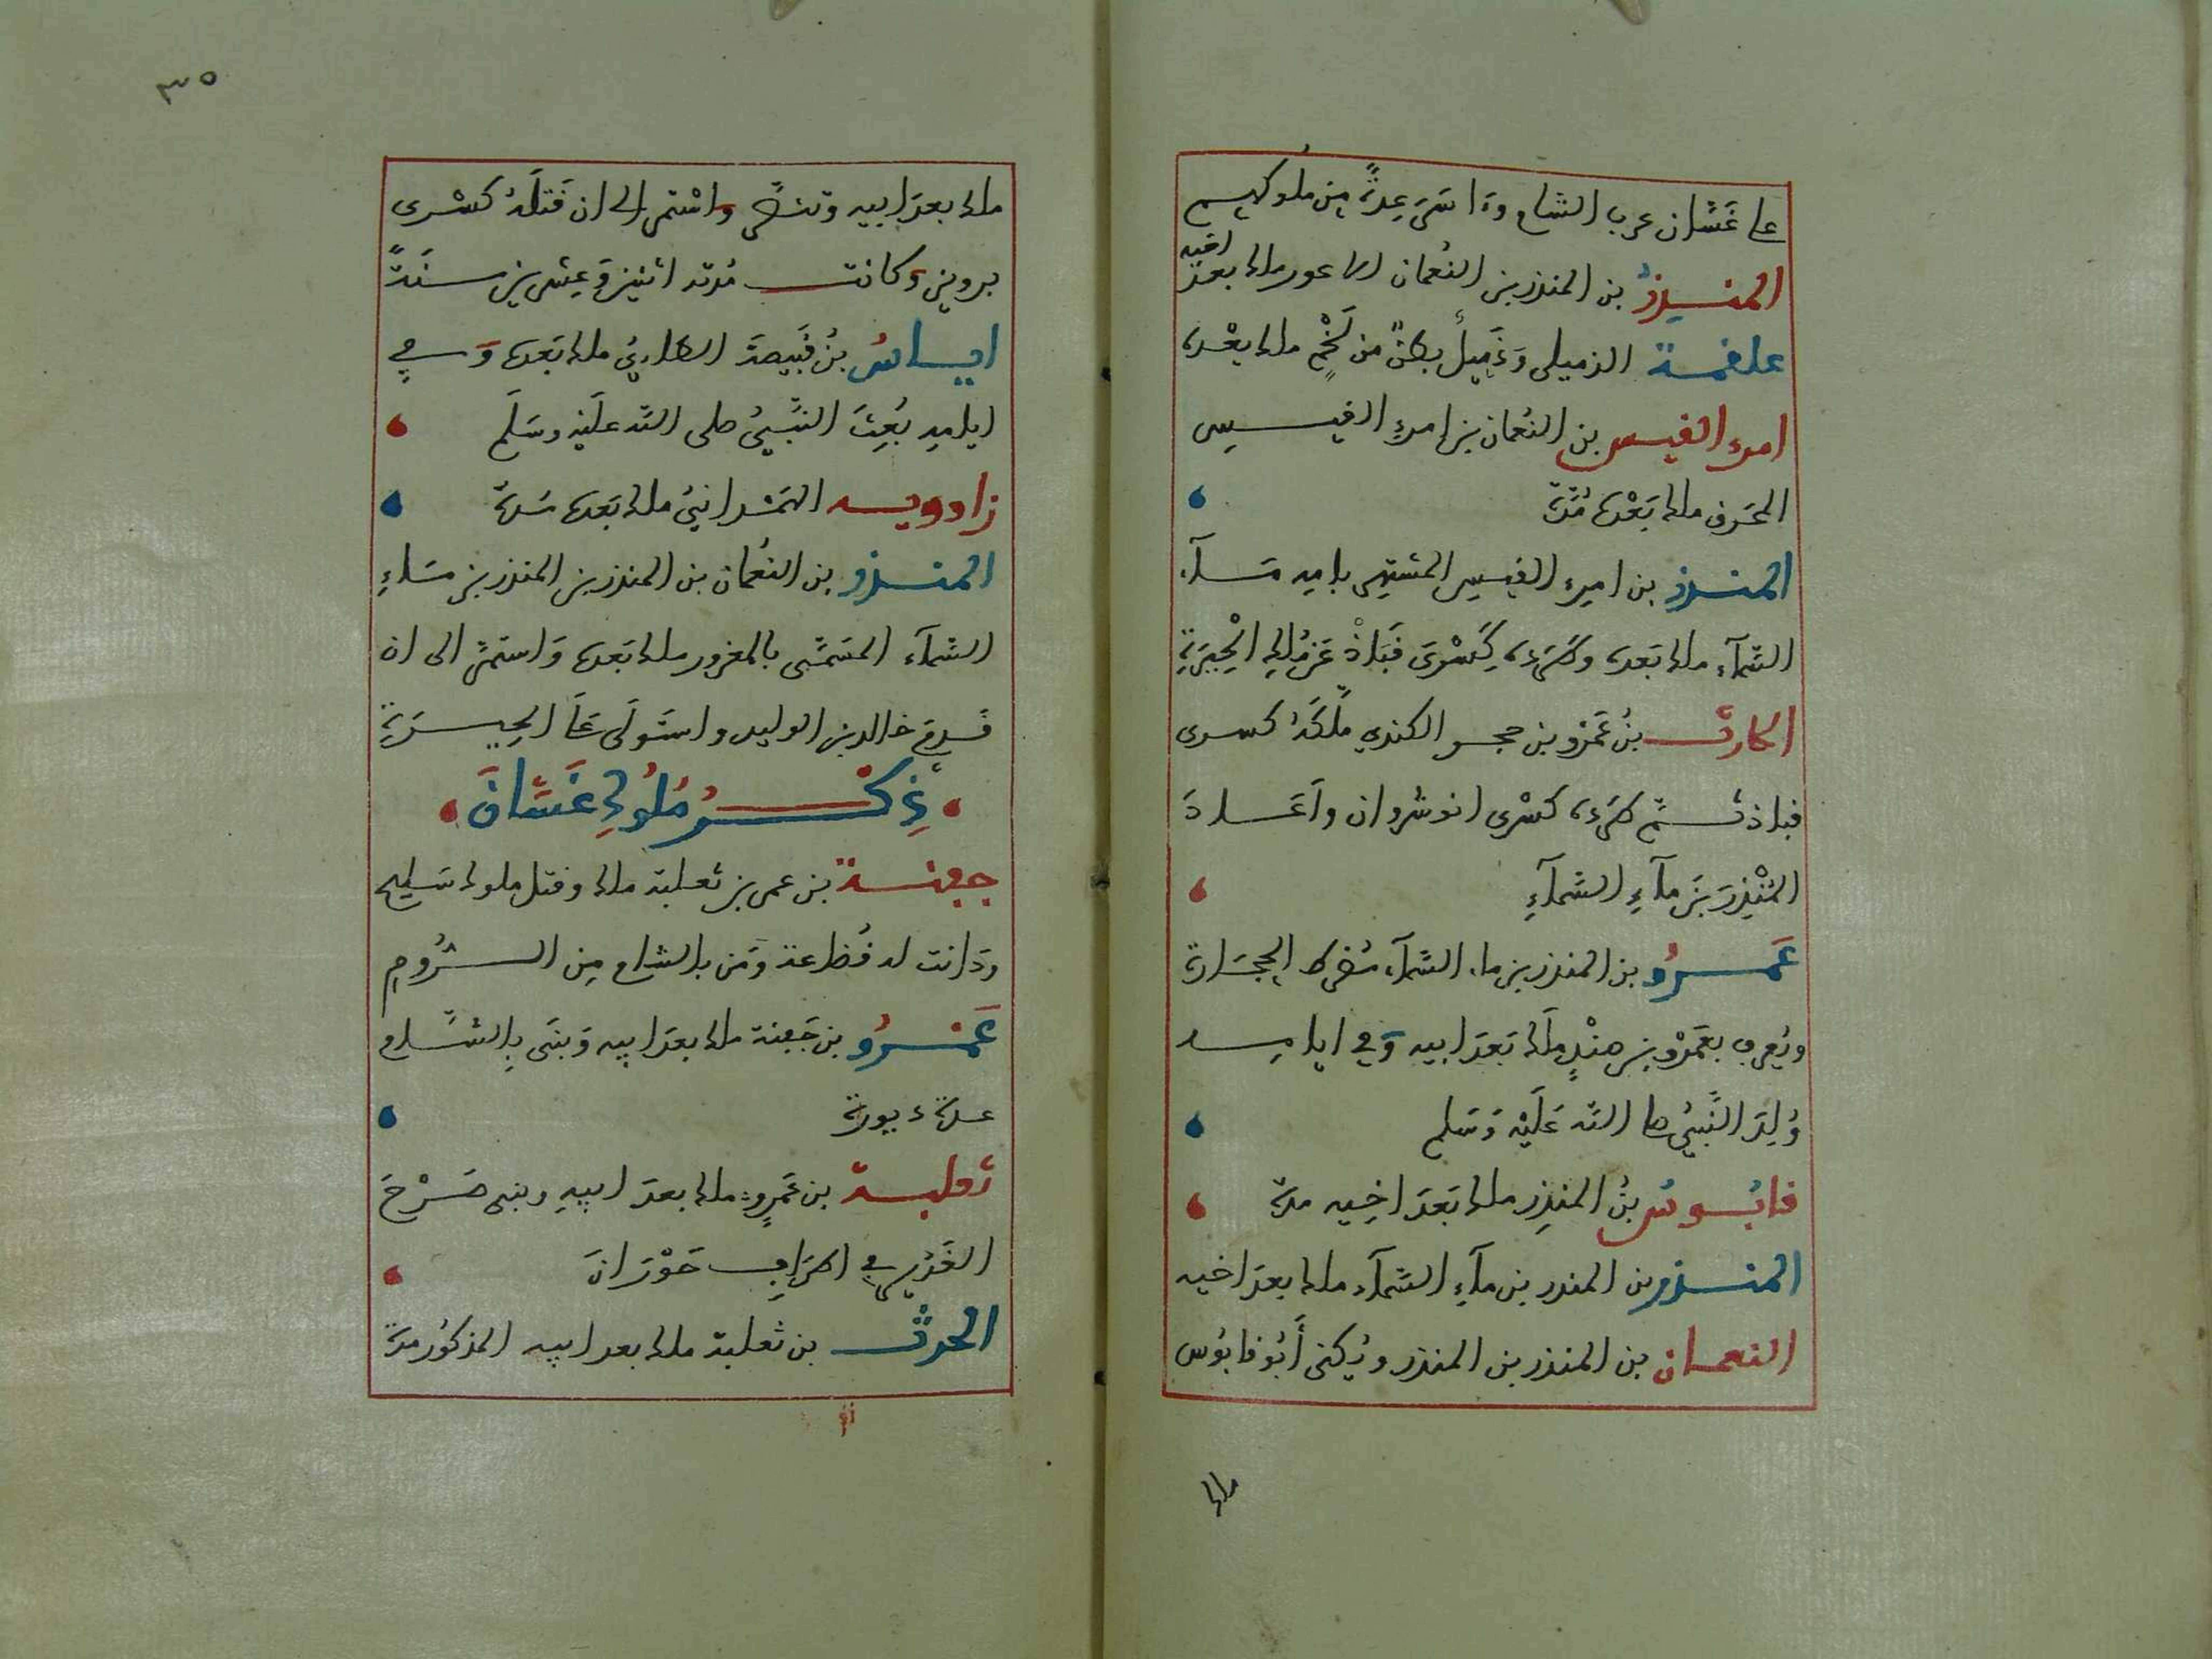 على غَسَّان عرب الشام وَاسَرَ عِدَّةً مِن مُلُوكهِم
المنذِرُ بن المنذر بن النُعمان الاعور ملك بعدَ اخيه
علقمة الذميلى وَذَمِيلُ بطنٌ من لَخْمٍ ملك بعْده
امرء القيس بن النعُمان بن امرءِ القيس
المحَرق ملك بَعْدَه مُدَّة
المنذر بن امرء القيس المشتهر بامه مَآء
السّمآء ملك بَعده وطَرَده كِسْرَى قبَاذْ عَن مُلكِ الْحِيرَةِ
الحارث بنُ عَمْرو بن حجر الكندي ملّكَهُ كسرى
قباذ ثم طَرَده كسْرى انوشروان وَاَعَادَ
المُنْذِرَ بنَ مآءِ السَّمآءِ
عَمرُو بن المنذر بن ماء السّمآء مُضرط الحِجَارة
ويُعرف بعَمْرو بن هنْدٍ مَلَك بَعدَ ابيه وَفي ايامه
وُلِدَ النَّبيُ صلى الله عَلَيْه وَسَلم
قابُوسُ بنُ المنذِر ملك بَعَدَ اخِيه مدّة
المنذر بن المنذر بن مآءِ السَّمآء ملك بعدَ اخيه
النعمان بن المنذر بن المنذر ويُكنى أَبُو قابُوس
ملك
٣٥
ملك بعدَ ابيه وتنصَّر واسْتمر الى ان قَتلَهُ كسْرى
برويز وكانت مُدّته اثنين وَعِشرين سنَةً
اياسُ بنُ قَبيصَةَ الطاءيُ ملك بَعدَه وَفي
ايامِه بُعِثَ النَّبيُ صلى الله عَلَيْه وسَلَم
زادويه الهَمَدانيُ ملك بَعدَه مدة
المنذر بن النعُمَان بن المنذر بن المنذر بن مَاءِ
السّمآء المسَمّى بالمغرور ملك بَعدَه وَاستمرَّ الى ان
قَدِمَ خالد بن الوليد واستَولَى عَلَى الحِيرَة
ذِكْرُ مُلُوكِ غَسَّانَ
جفنة بن عمر بن ثعلبة ملك وقتل ملوك سَليح
ودَانت له قُضاعة وَمَن بالشام مِن الرُّومِ
عَمْرُو بن جَفنة ملك بعدَ ابيه وَبنَى بِالشَّام
عدة ديورة
ثعلبة بن عَمرٍو ملك بعدَ ابيهِ وبنى صَرْحَ
الغَدير في اطرَافِ حَوْرَانَ
الحرث بن ثعلبة ملك بعد ابيه المذكُور مدة